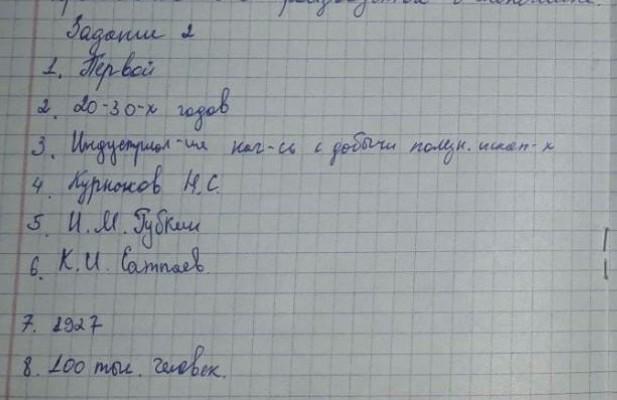 Задание 2
1. Первой
2. 20-30-х годов
3. Индустриал-ия нач-сь с добычи полезн. ископ-х
4. Курнаков Н.С.
5. И.М. Губкин
6. К.И. Сатпаев
7. 1927
8. 100 тыс. человек.